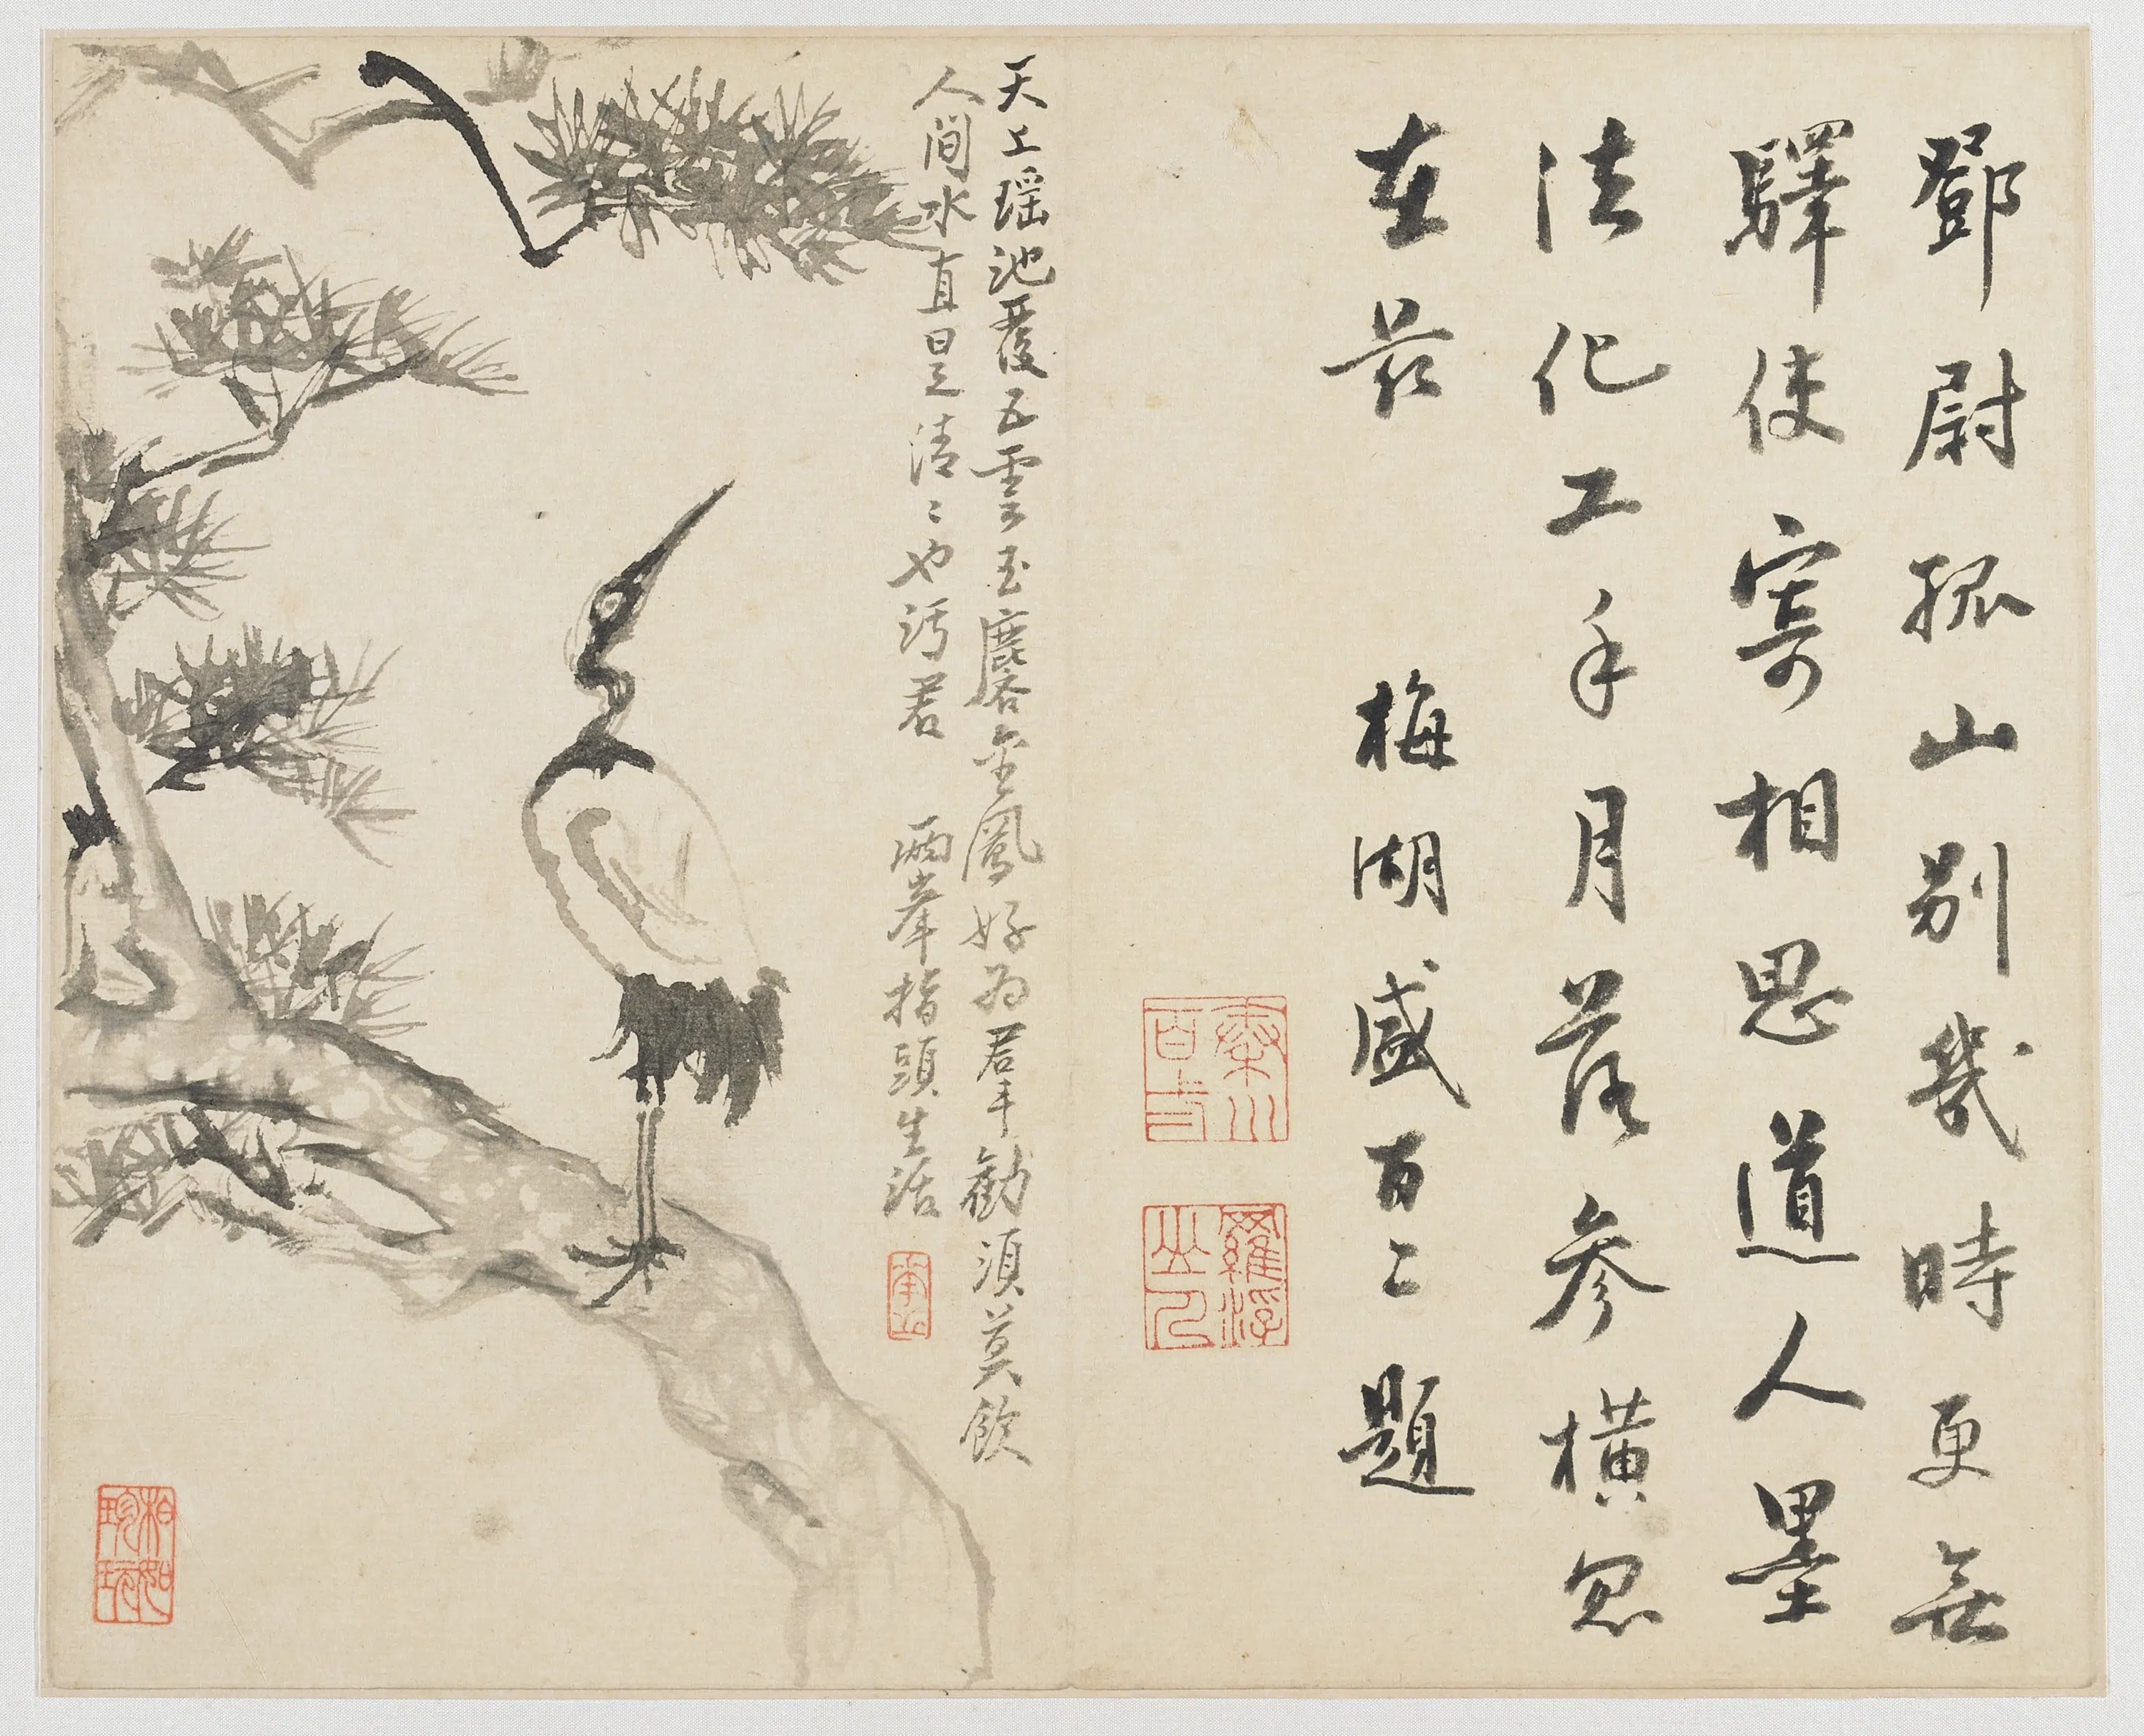 鄧尉孤山別幾時更無
驛使寄相思道人墨
法化工手月落參橫忽
在茲 梅湖盛百二題
秦川百二
羅浮山人
天上瑤池覆五雲玉麐金鳳好為羣勸須莫飲
人間水直是清〻也污君 兩峯指頭生活
柏如珍玩